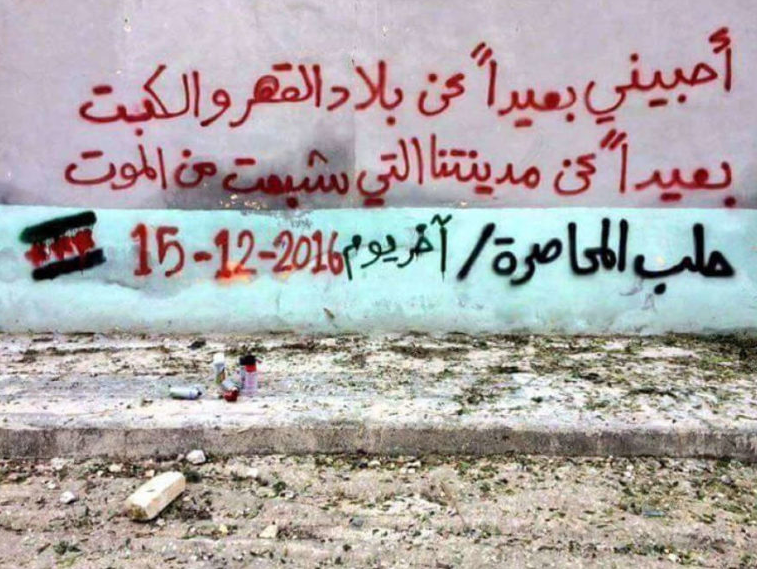 أحبيني بعيداً عن بلاد القهر والكبت
بعيداً عن مدينتنا التي شبعت من الموت
حلب المحاصرة / آخر يوم 15-12-2016